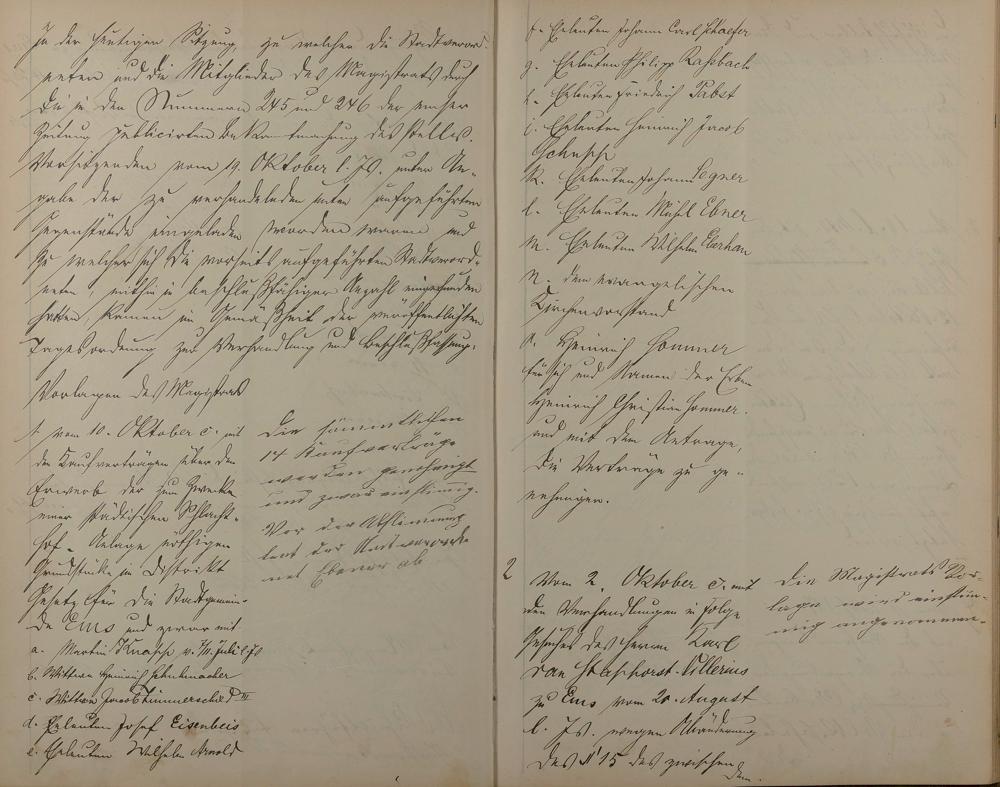 In der heutigen Sitzung, zu welcher die Stadtverord-
neten und die Mitglieder des Magistrats durch
die in den Nummern 245 und 246 der Emser
Zeitung publicirten Bekanntmachung des stellv.
Vorsitzenden vom 19. Oktober l. Js. unter An-
gabe der zu verhandelnden unten aufgeführten
Gegenstände eingeladen worden waren und
zu welcher sich die vorseits aufgeführten Stadtverord-
neten mithin in beschlußfähiger Anzahl eingefunden
hatten, kamen in Gemäßheit der veröffentlichten
Tagesordnung zur Verhandlung und Beschlußfassung:
Vorlagen des Magistrats
1. vom 10. Oktober c. mit
den Kaufverträgen über den
Erwerb der zum Zwecke
einer städtischen Schlacht-
hof-Anlage nöthigen
Grundstücke im Distrikt
für die Stadtgemein-
de Ems und zwar mit
a. Martin Knapp v. 7/11. Juli l. Js
b. Wittwe Heinrich Schuhmacher
c. Wittwe Jacob Zimmerschied III
d. Eheleuten Josef Eisenbeis
e. Eheleuten Wilhelm Arnold
Die sämmtlichen
14 Kaufverträge
werden genehmigt
und zwar einstimmig.
Vor der Abstimmung
trat der Stadtverord-
nete Ebener ab
f. Eheleuten Johann Carl Schaefer
g. Eheleuten Philipp Raßbach
h. Eheleuten Friedrich Pabst
i. Eheleuten Heinrich Jacob
Schupp
k. Eheleuten Johann Segner
l. Eheleuten Ebner
m. Eheleuten Wilhelm Eberhan
n. dem evangelischen
Kirchenvorstand
o. Heinrich Hommer
für sich und Namens der Erben
Heinrich Christian Hommer.
und mit dem Antrage,
die Verträge zu ge-
nehmigen.
2 Vom 2. Oktober c. mit
den Verhandlungen in Folge
Gesuches des Herrn Karl
van Staphorst-Villerius
zu Ems vom 20. August
l. Js. wegen Abänderung
des § 15 des zwischen
dem
Die Magistrats Vor-
lage wird einstim-
mig angenommen.